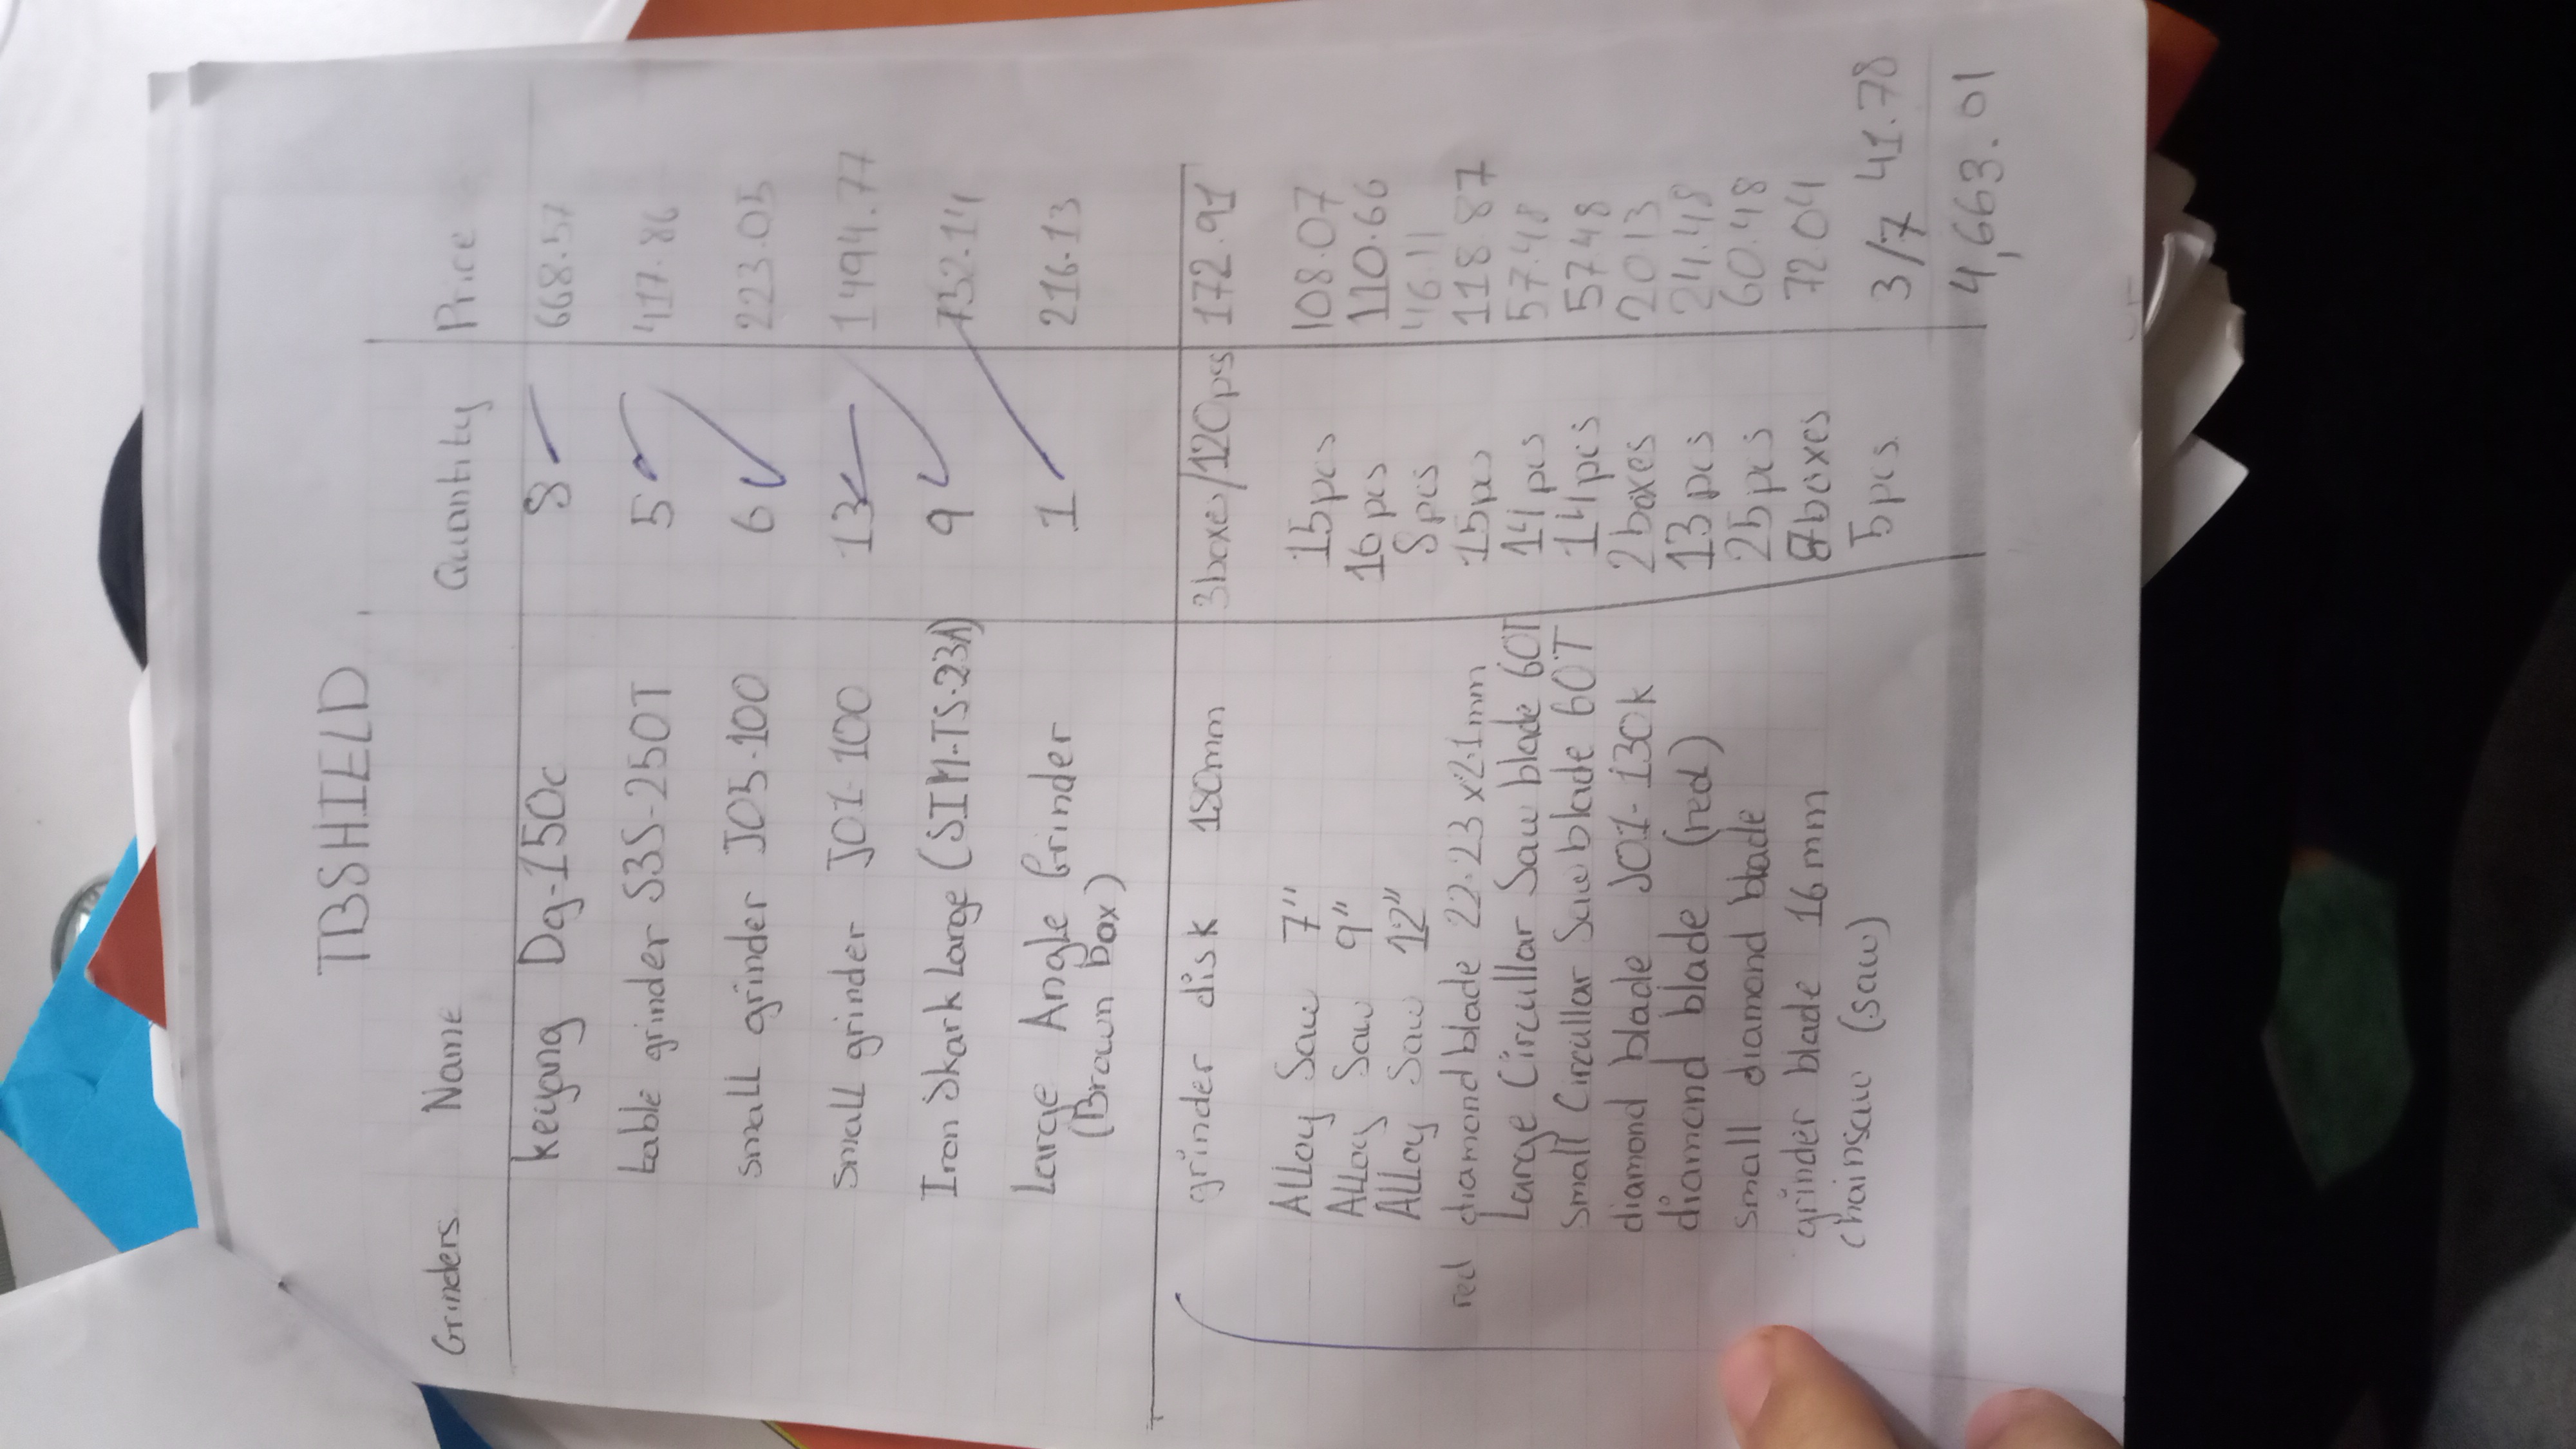 TBSHIELD
Grinders Name Quantity Price
keyang Dg-150c 8 668.57
table grinder S3S-250T 5 417.86
small grinder J05-100 6 223.05
small grinder J01-100 13 1494.77
Iron Skark Large (SIM-TS-23A) 9 752.14
Large Angle Grinder 1 216.13
(Brown Box)
grinder disk 180mm 3boxes/120ps 172.91
ALLoy Saw 7" 15pcs 108.07
ALLoy Saw 9" 16pcs 110.66
ALLoy Saw 12" 8pcs 46.11
red diamond blade 22.23x2.1mm 15pcs 118.87
Large Circullar Saw blade 60T 14pcs 57.48
Small Circullar Saw blade 60T 14pcs 57.48
diamond blade J01-130k 2boxes 20.13
diamond blade (red) 13pcs 24.48
small diamond blade 25pcs 60.48
grinder blade 16mm boxes 72.04
Chainsaw (saw) 5pcs 3/7 41.78
4,663.01